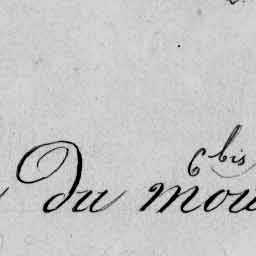 6 bis
Du mou